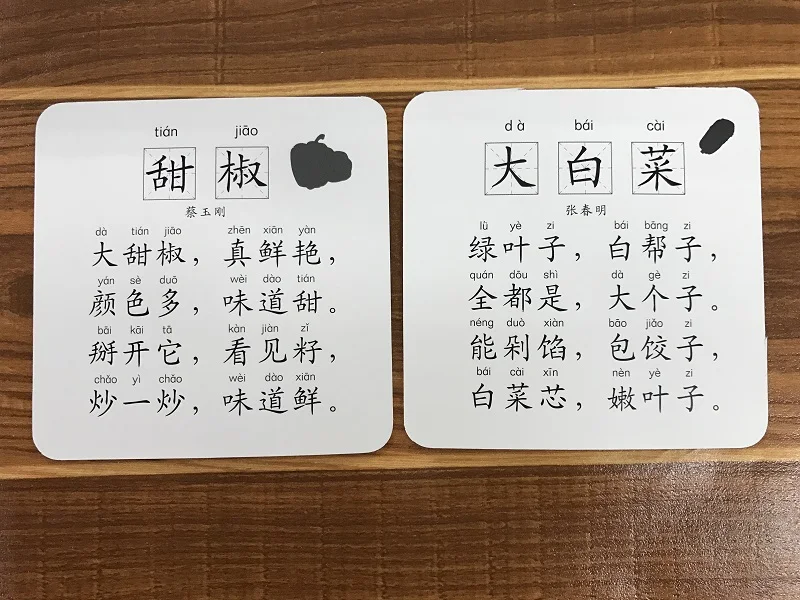 tián jiāo
甜椒
蔡玉刚
dà tián jiāo zhēn xiān yàn
大甜椒，真鲜艳，
yán sè duō wèi dào tián
颜色多，味道甜。
bāi kāi tā kàn jiàn zǐ
掰开它，看见籽，
chǎo yì chǎo wèi dào xiān
炒一炒，味道鲜。
dà bái cài
大白菜
张春明
lǜ yè zi bái bāng zi
绿叶子，白帮子，
quán dōu shì dà gè zi
全都是，大个子。
néng duò xiàn bāo jiǎo zi
能剁馅，包饺子，
bái cài xīn nèn yè zi
白菜芯，嫩叶子。